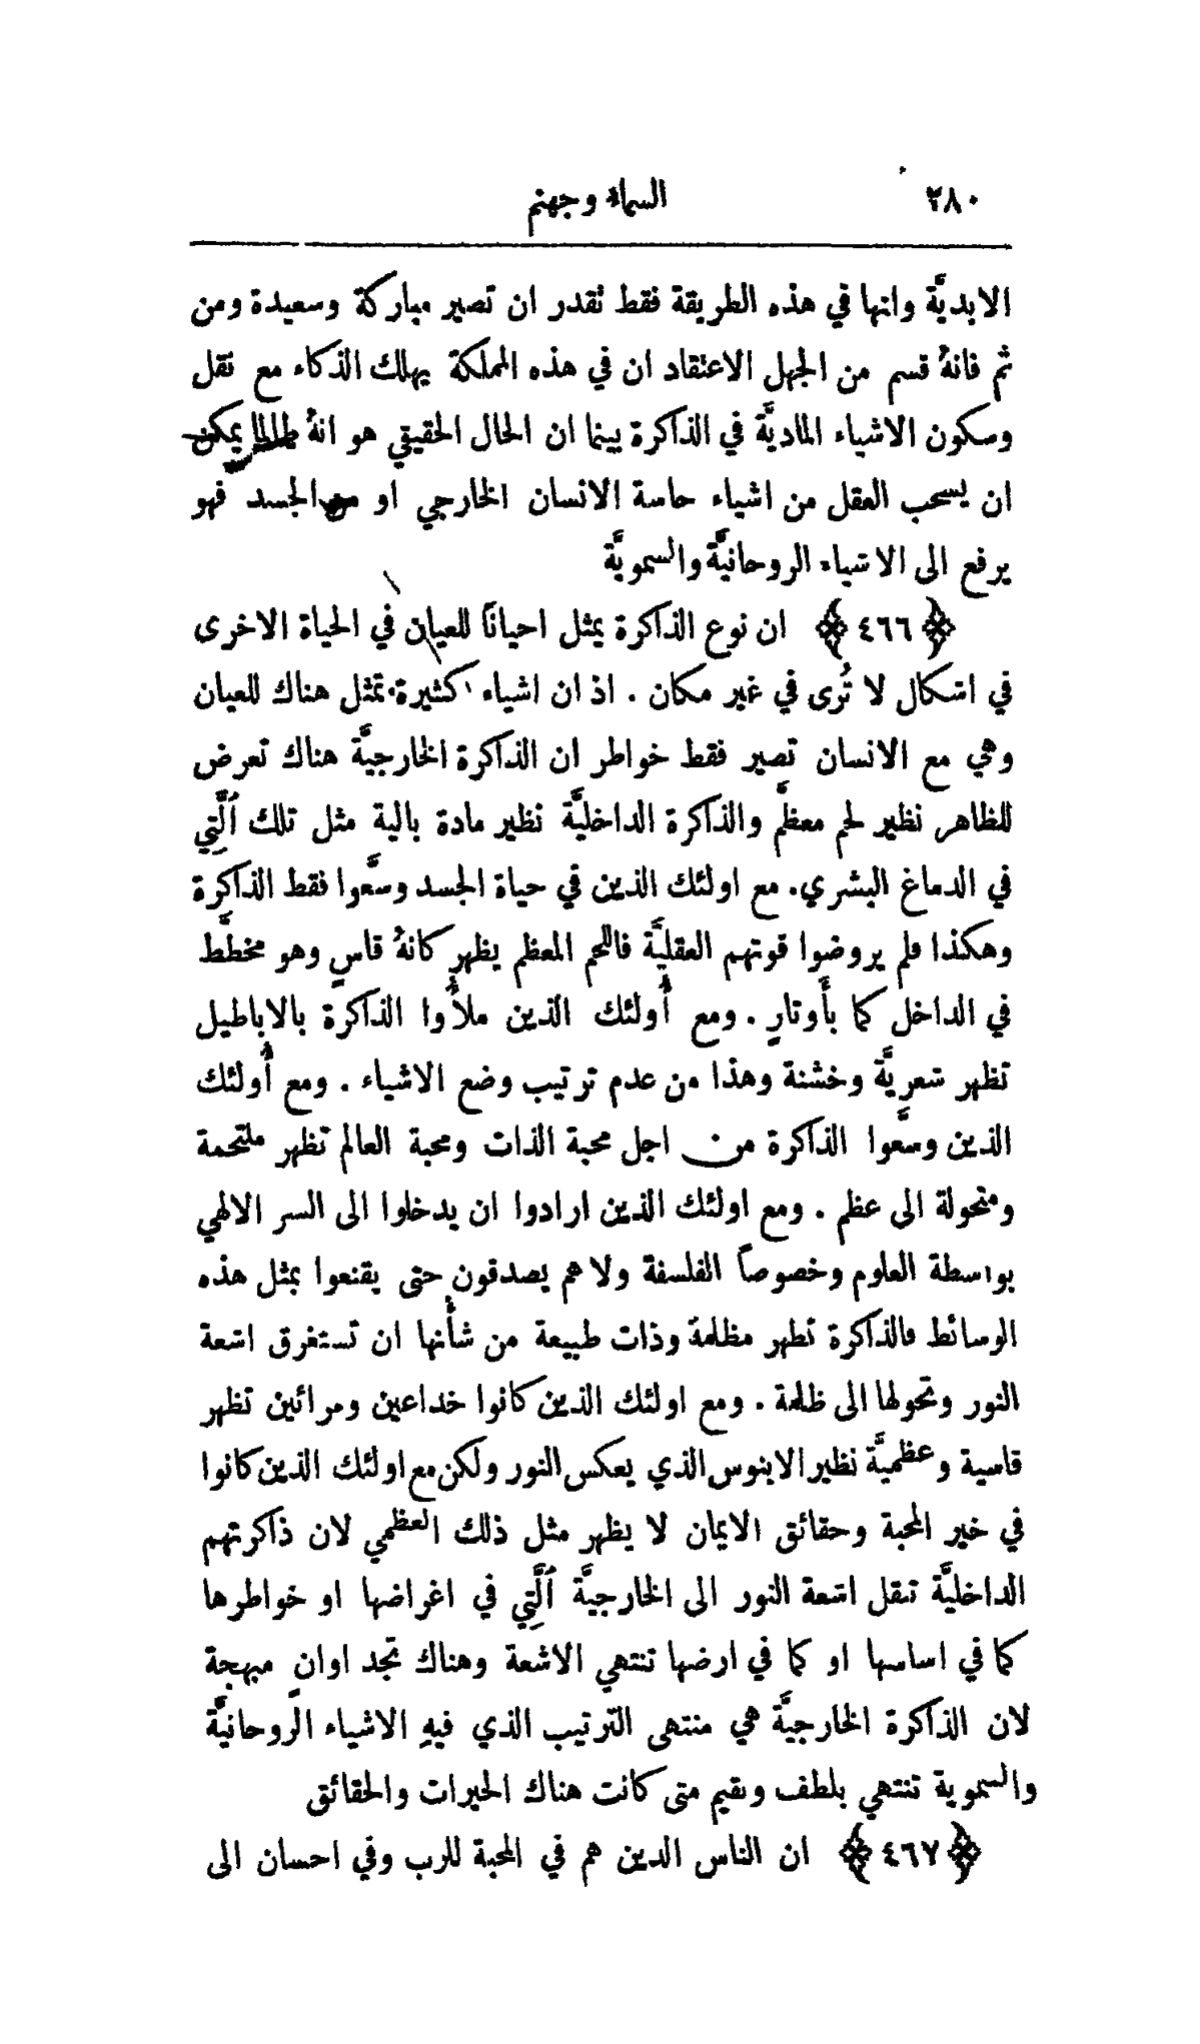 ٢٨٠ السماء وجهنم
الابديَّة وانها في هذه الطريقة فقط نقدر ان تصير مباركة وسعيدة ومن
ثم فانهُ قسم من الجهل الاعتقاد ان في هذه المملكة يهلك الذكاء مع نقل
وسكون الاشياء الماديَّة في الذاكرة بينما ان الحال الحقيقي هو انهُ طالما يمكن
ان يسحب العقل من اشياء حاسة الانسان الخارجي او من الجسد فهو
يرفع الى الاشياء الروحانيَّة والسمويَّة
﴿٤٦٦﴾ ان نوع الذاكرة يمثل احيانًا للعيان في الحياة الاخرى
في اشكال لا تُرى في غير مكان . اذ ان اشياء كثيرة تمثل هناك للعيان
وهي مع الانسان تصير فقط خواطر ان الذاكرة الخارجيَّة هناك تعرض
للظاهر نظير لحم معظَّم والذاكرة الداخليَّة نظير مادة بالية مثل تلك ٱلَّتِي
في الدماغ البشري. مع اولئك الذين في حياة الجسد وسَّعوا فقط الذاكرة
وهكذا فلم يروضوا قوتهم العقليَّة فاللحم المعظم يظهر كانهُ قاسٍ وهو مخطَّط
في الداخل كما بأَوتارٍ . ومع أُولئك الذين ملأُوا الذاكرة بالاباطيل
تظهر شعريَّة وخشنة وهذا من عدم ترتيب وضع الاشياء . ومع أُولئك
الذين وسَّعوا الذاكرة من اجل محبة الذات ومحبة العالم تظهر ملتحمة
ومتحولة الى عظم . ومع اولئك الذين ارادوا ان يدخلوا الى السر الالهي
بواسطة العلوم وخصوصًا الفلسفة ولا هم يصدقون حتى يقنعوا بمثل هذه
الوسائط فالذاكرة تظهر مظلمة وذات طبيعة من شأْنها ان تستغرق اشعة
النور وتحولها الى ظلمة . ومع اولئك الذين كانوا خداعين ومرائين تظهر
قاسية وعظميَّة نظير الابنوس الذي يعكس النور ولكن مع اولئك الذين كانوا
في خير المحبة وحقائق الايمان لا يظهر مثل ذلك العظمي لان ذاكرتهم
الداخليَّة تنقل اشعة النور الى الخارجيَّة ٱلَّتِي في اغراضها او خواطرها
كما في اساسها او كما في ارضها تنتهي الاشعة وهناك تجد اوانٍ مبهجة
لان الذاكرة الخارجيَّة هي منتهى الترتيب الذي فيهِ الاشياء الروحانيَّة
والسموية تنتهي بلطف وتقيم متى كانت هناك الخيرات والحقائق
﴿٤٦٧﴾ ان الناس الذين هم في المحبة للرب وفي احسان الى